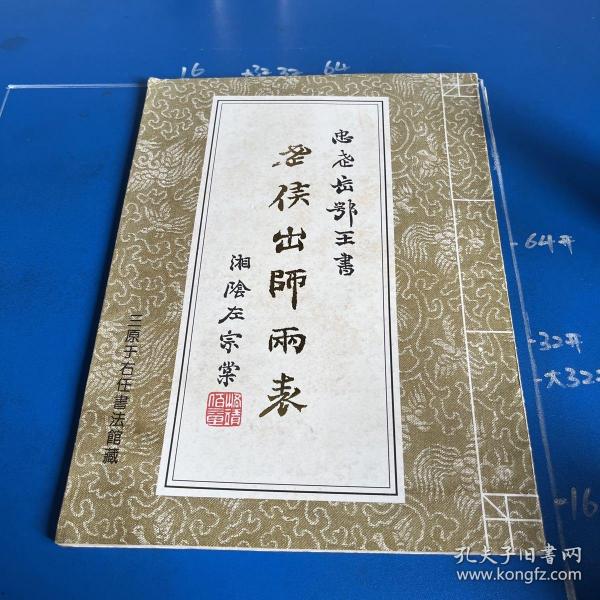 忠武岳鄂王書
武侯出師兩表
湘陰左宗棠
三原于右任書法館藏
16 大32 32 64
-64开
-32开
-大32
-16
孔夫子旧书网
www.kongfz.com